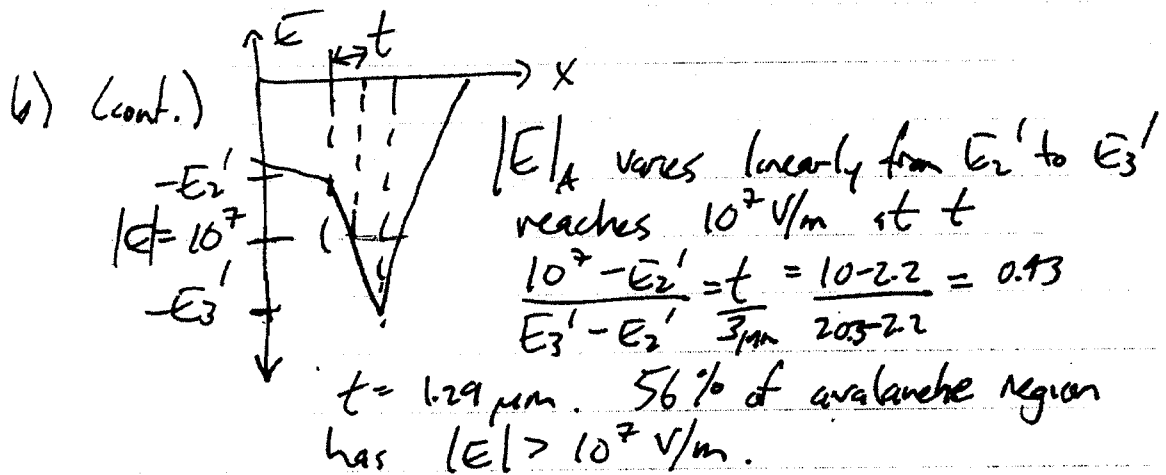 E t
x
b) (cont.)
-E₂'
|E| = 10⁷
-E₃'
|E|_A varies linearly from E₂' to E₃'
reaches 10⁷ V/m at t
(10⁷ - E₂')/(E₃' - E₂') = t/3μm = (10-2.2)/(20.5-2.2) = 0.43
t = 1.29 μm. 56% of avalanche region
has |E| > 10⁷ V/m.